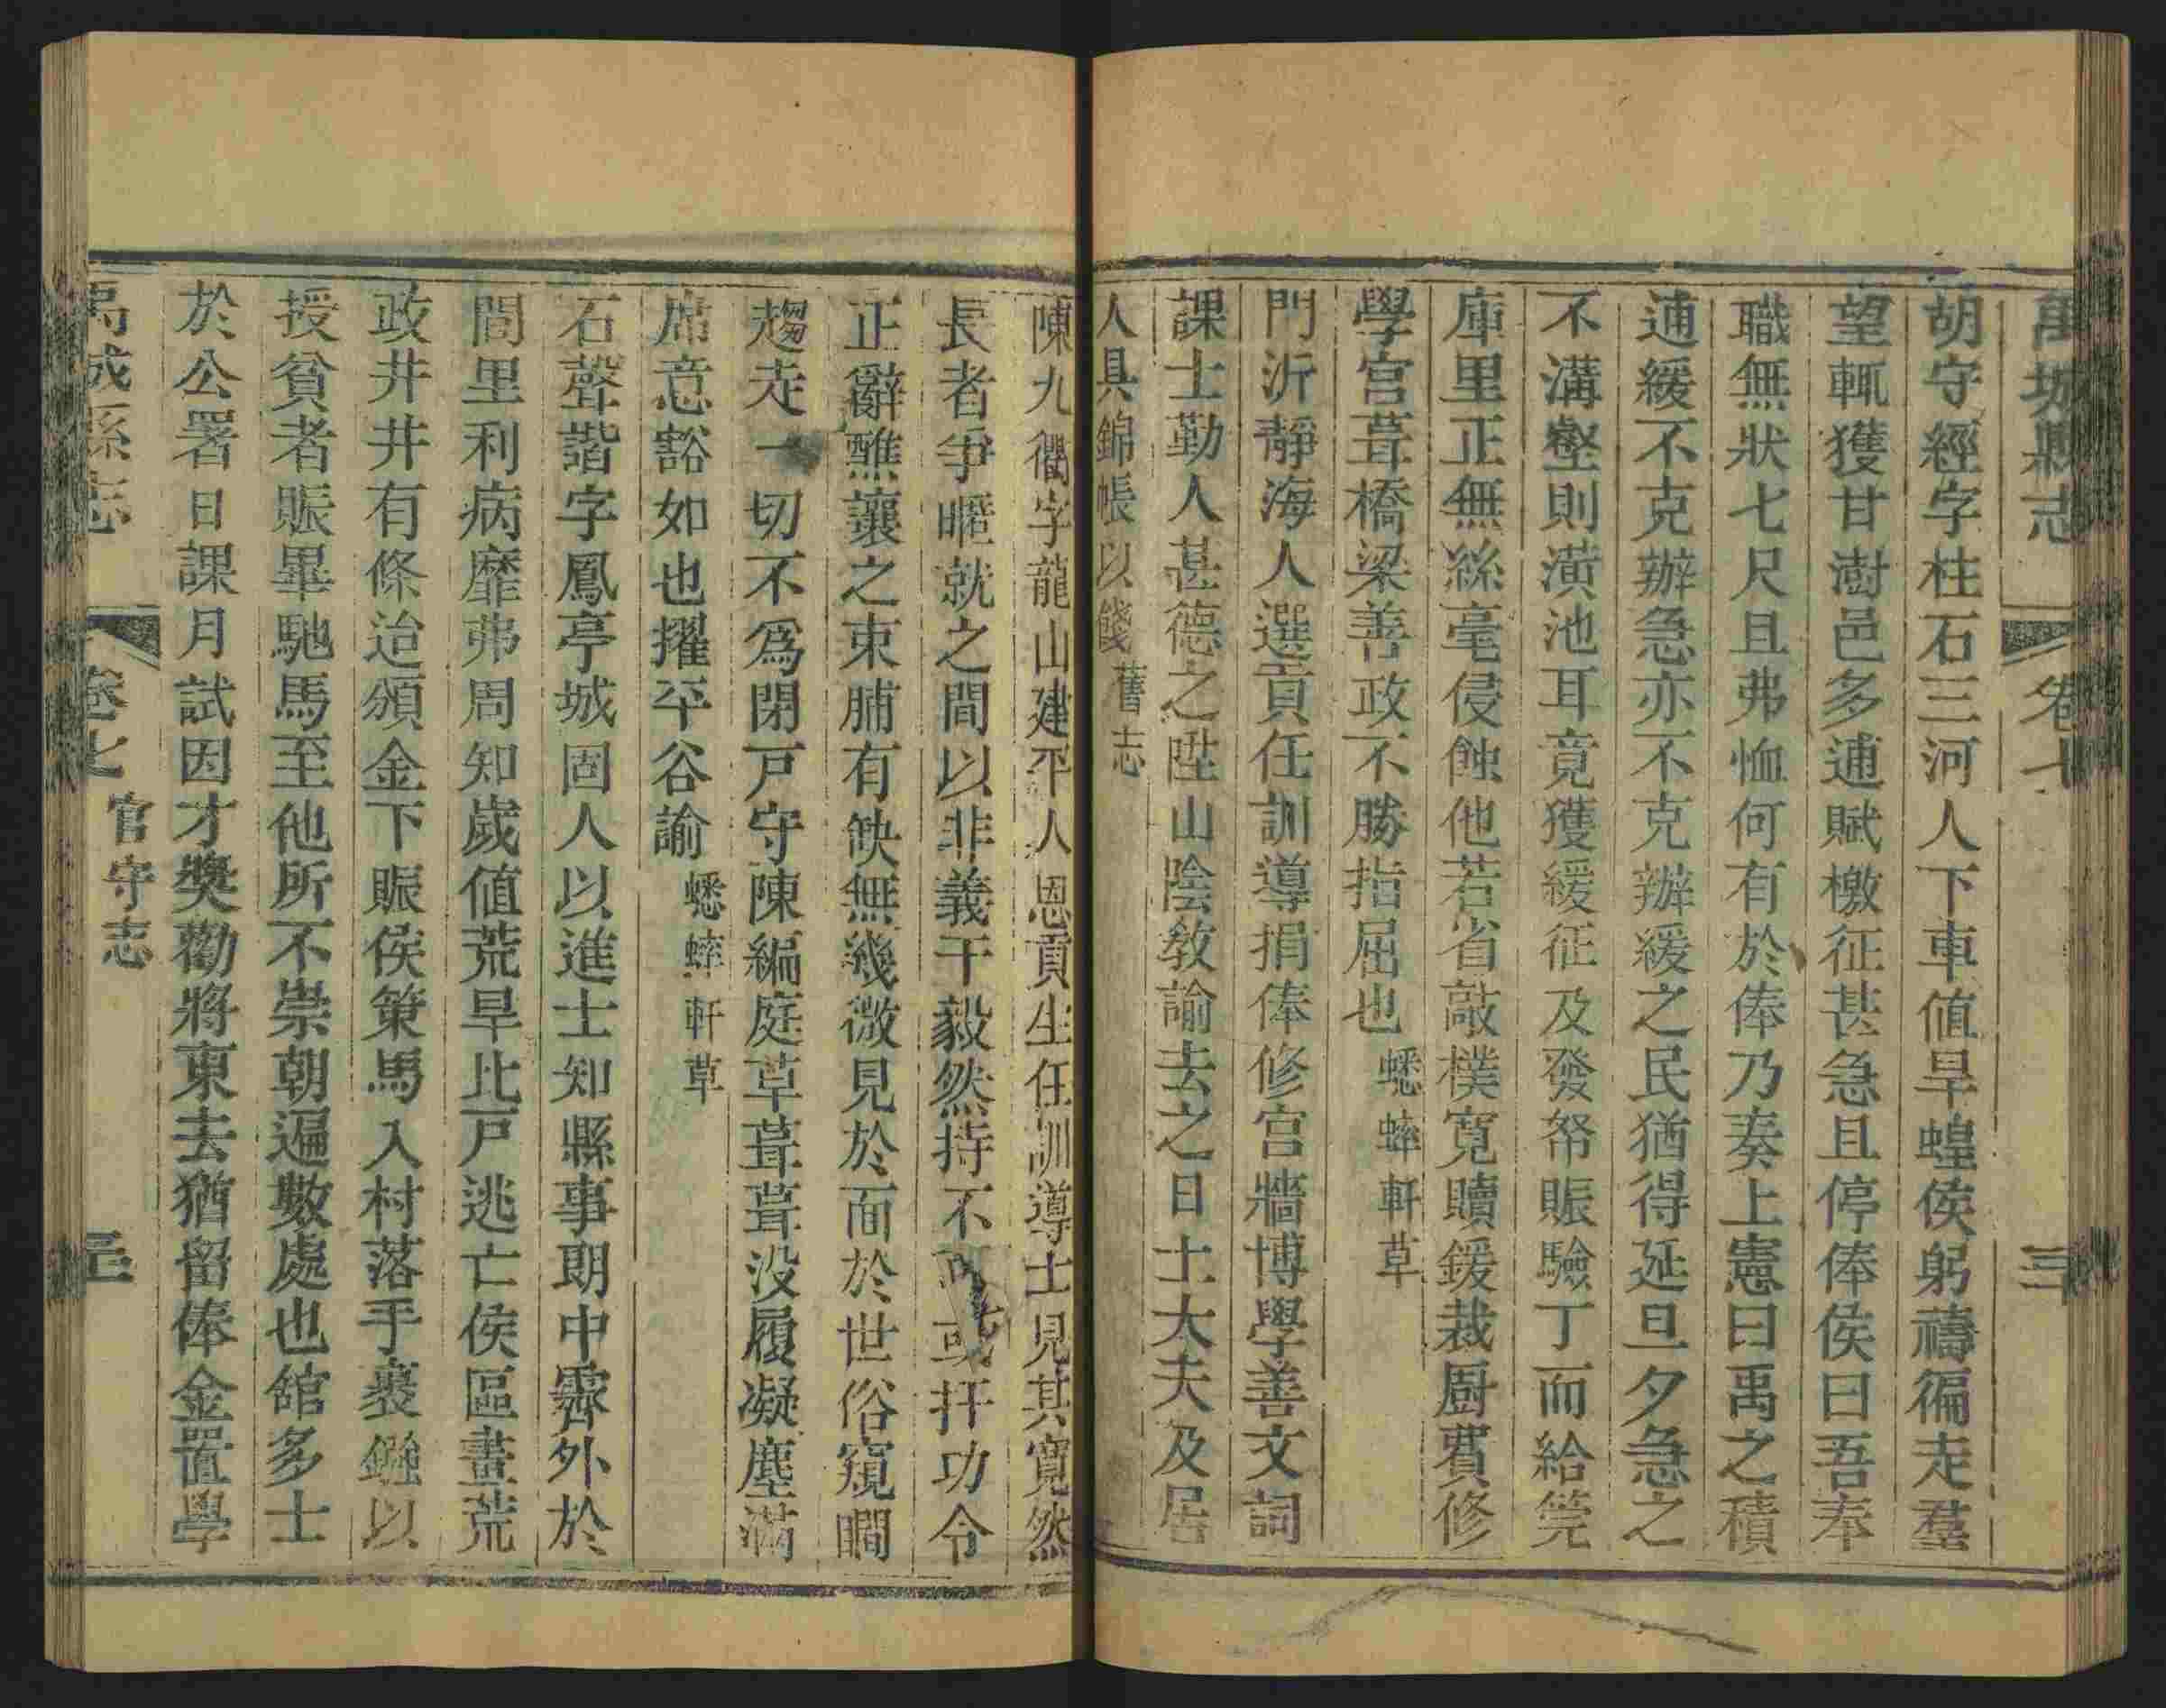 禹城縣志 卷七
胡守經字柱石三河人下車值旱蝗侯躬禱徧走羣
望輒獲甘澍邑多逋賦檄征甚急且停俸侯曰吾奉
職無狀七尺且弗恤何有於俸乃奏上憲曰禹之積
逋緩不克辦急亦不克辦緩之民猶得延旦夕急之
不溝壑則潢池耳竟獲緩征及發帑賑驗丁而給筦
庫里正無絲毫侵蝕他若省敲樸寬贖鍰裁厨費修
學宮葺橋梁善政不勝指屈也 蟋蟀軒草
門沂靜海人選貢任訓導捐俸修宮牆博學善文詞
課士勤人甚德之陞山陰教諭去之日士大夫及居
人具錦帳以餞 舊志
陳九衢字龍山建平人恩貢生任訓導士見其寬然
長者爭暱就之間以非義干毅然持不可或扞功令
正辭醮讓之束脯有缺無幾微見於面於世俗窺瞷
趨走一切不爲閉戸守陳編庭草葺葺没履凝塵滿
席意豁如也擢平谷諭 蟋蟀軒草
石聲諧字鳳亭城固人以進士知縣事朗中霽外於
閭里利病靡弗周知歲值荒旱比戸逃亡侯區畫荒
政井井有條迨頒金下賑侯策馬入村落手裹鏹以
授貧者賑畢馳馬至他所不崇朝遍數處也舘多士
於公署日課月試因才獎勸將東去猶留俸金置學
禹城縣志 卷七 官守志